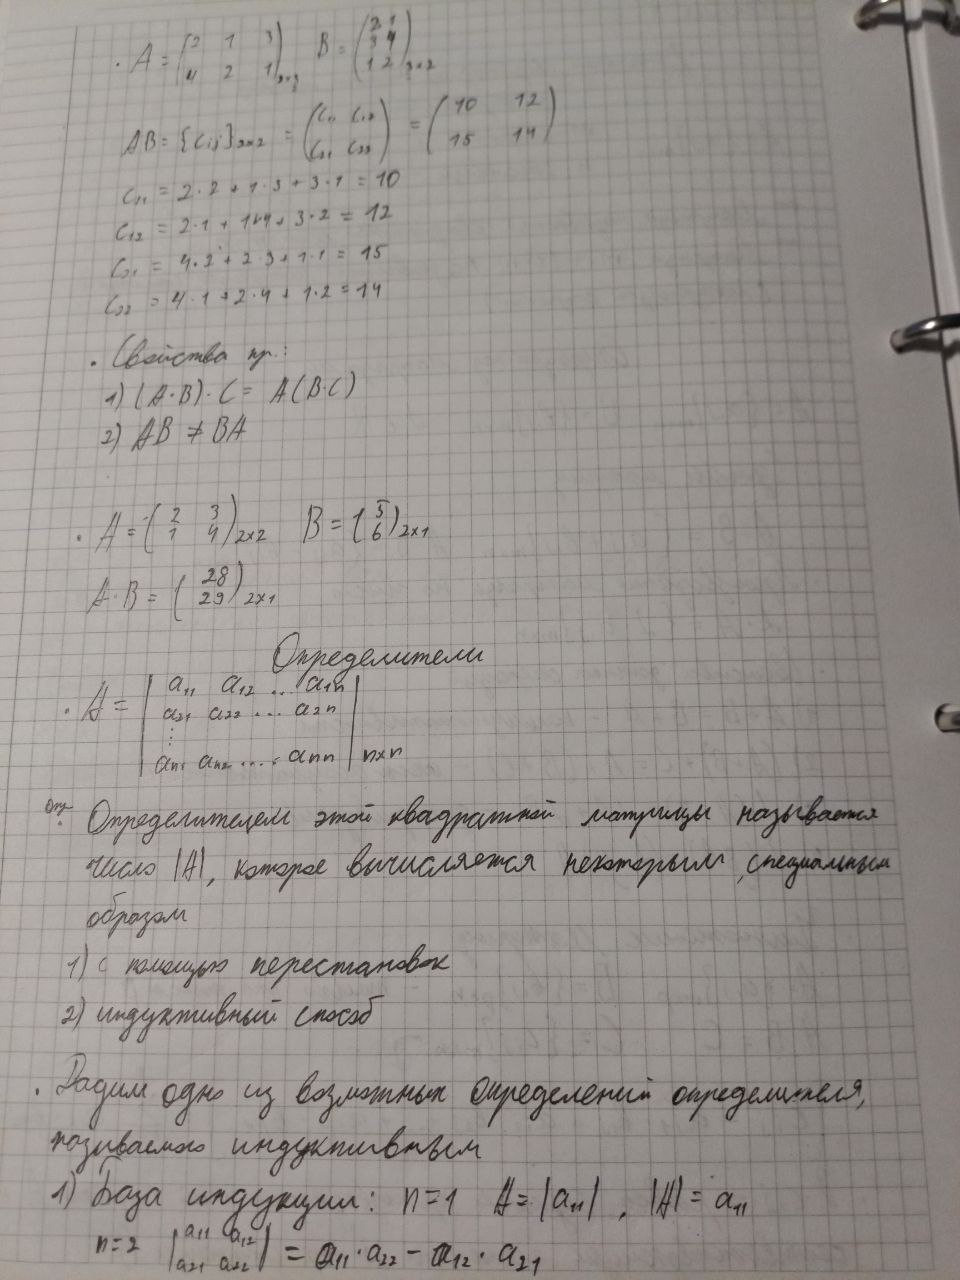 · A = (2 1 3
4 2 1)₂ₓ₃ B = (2 1
3 4
1 2)₃ₓ₂
AB = {Cij}₂ₓ₂ = (C₁₁ C₁₂
C₂₁ C₂₂) = (10 12
15 14)
C₁₁ = 2·2 + 1·3 + 3·1 = 10
C₁₂ = 2·1 + 1·4 + 3·2 = 12
C₂₁ = 4·2 + 2·3 + 1·1 = 15
C₂₂ = 4·1 + 2·4 + 1·2 = 14
· Свойства пр.:
1) (A·B)·C = A(B·C)
2) AB ≠ BA
· A = (2 3
1 4)₂ₓ₂ B = (5
6)₂ₓ₁
A·B = (28
29)₂ₓ₁
Определители
· A = |a₁₁ a₁₂ ... a₁n
a₂₁ a₂₂ ... a₂n
⋮
an₁ an₂ .... ann| nxn
Опр: Определителем этой квадратной матрицы называется
число |A|, которое вычисляется некоторым специальным
образом
1) с помощью перестановок
2) индуктивный способ
· Дадим одно из возможных определений определителя,
называемого индуктивным
1) База индукции: n=1 A = |a₁₁|, |A| = a₁₁
n=2 |a₁₁ a₁₂
a₂₁ a₂₂| = a₁₁·a₂₂ − a₁₂·a₂₁